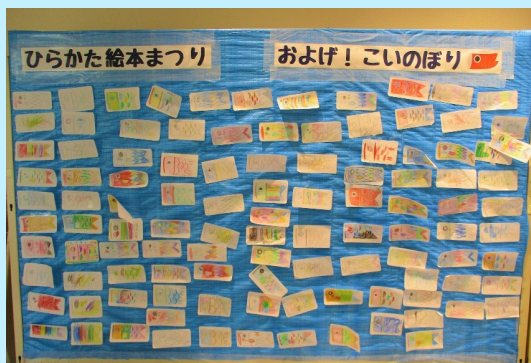 ひらかた絵本まつり
およげ！こいのぼり